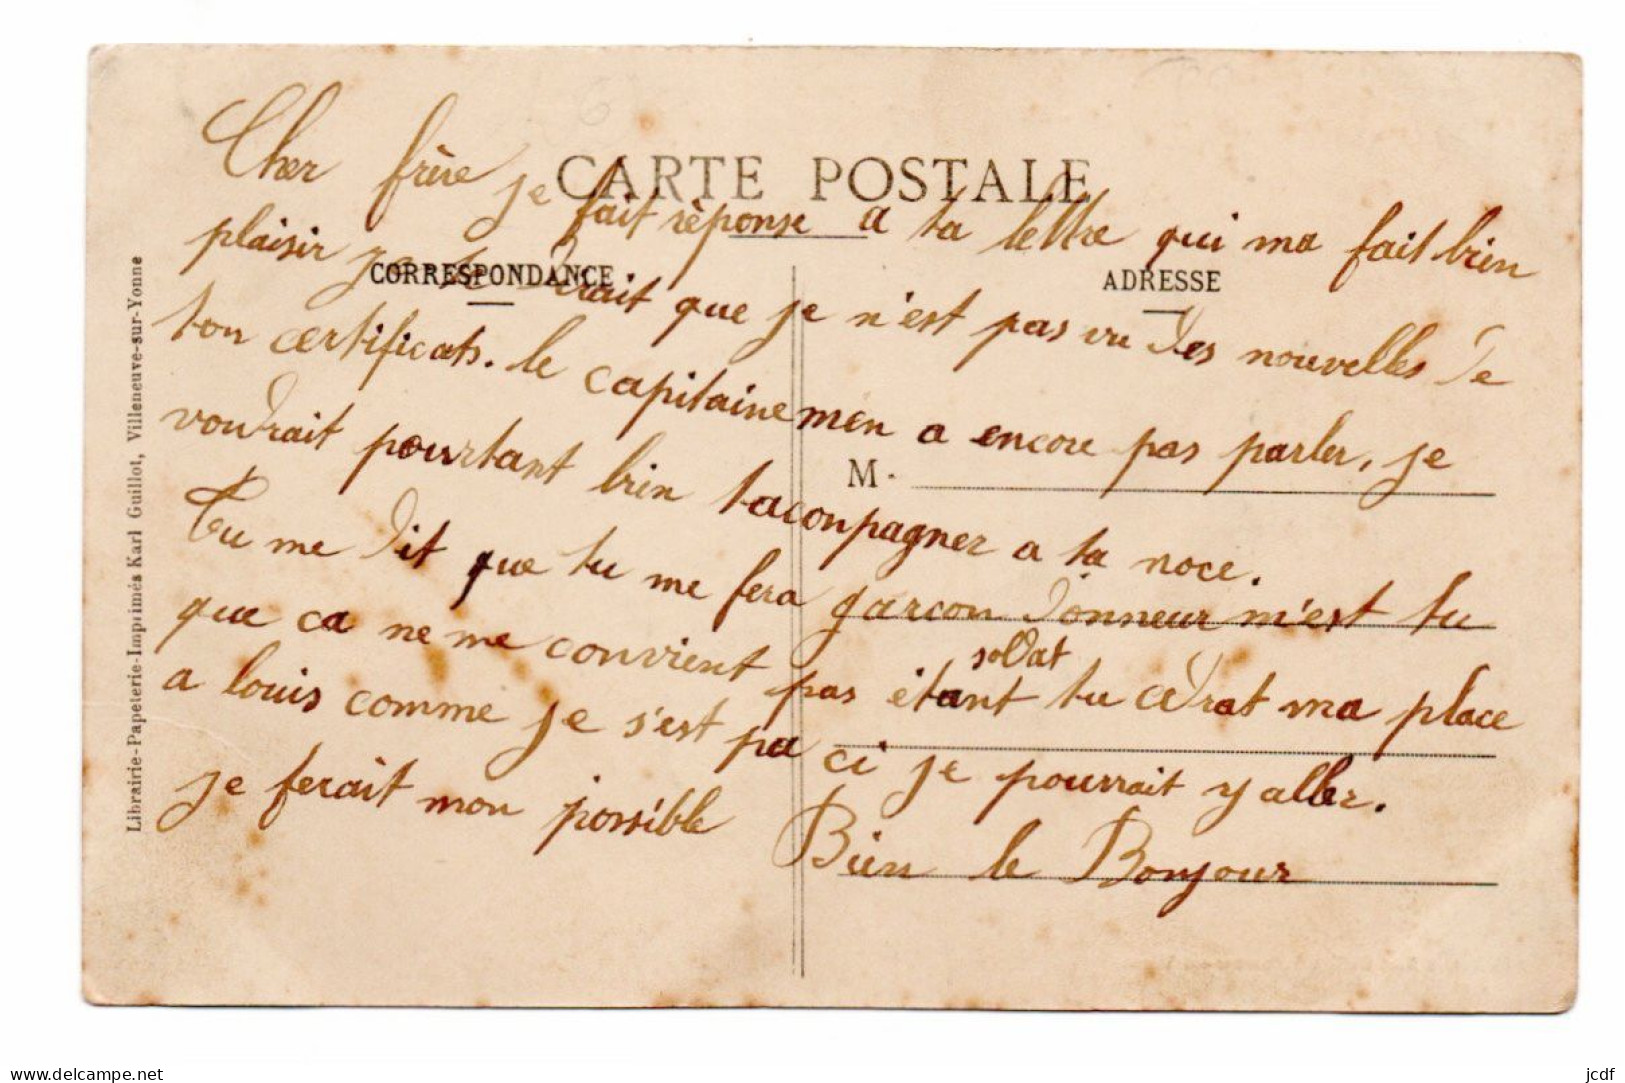 CARTE POSTALE
CORRESPONDANCE
ADRESSE
M.
Librairie-Papeterie-Imprimés Karl Guillot, Villeneuve-sur-Yonne
Cher frère je fait rèponse a ta lettre qui ma fait bien
plaisir je dirait que je n'est pas vu des nouvelles de
ton certificats. le capitaine men a encore pas parler, je
voudrait pourtant bien taconpagner a ta noce.
Tu me dit que tu me fera garcon donneur m'est tu
que ca ne me convient pas étant soldat tu cedrat ma place
a louis comme je s'est pa ci je pourrait y aller.
je ferait mon possible
Bien le Bonjour
www.delcampe.net
jcdf